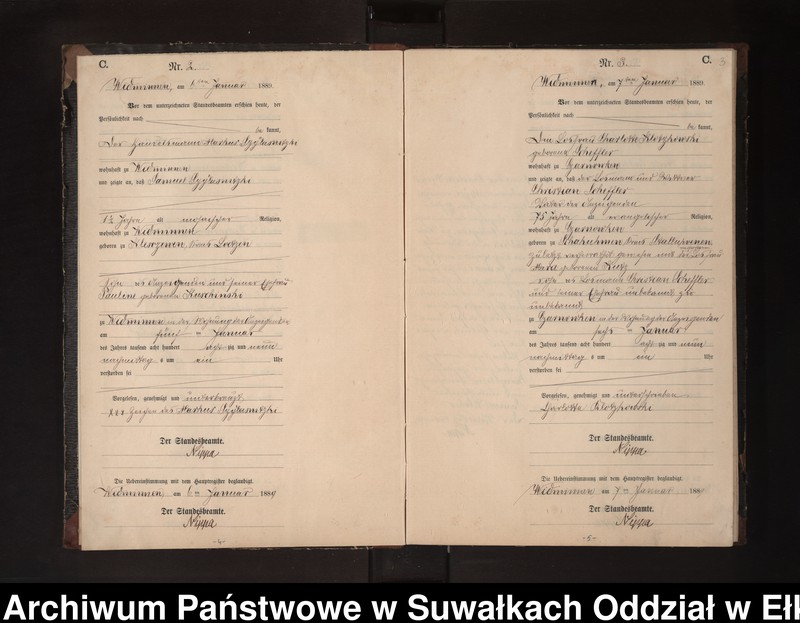 C.
Nr. 2
Widminnen, am 6ten Januar 1889.
Vor dem unterzeichneten Standesbeamten erschien heute, der
Persönlichkeit nach
be kannt,
Der Handelsmann Markus
wohnhaft zu Widminnen
und zeigte an, daß Samuel
1½ Jahren alt mosaischer Religion,
wohnhaft zu Widminnen
geboren zu Kreis Loetzen
Sohn des Anzeigenden und seiner Ehefrau
Pauline geborenen
zu Widminnen in der Wohnung des Anzeigenden
am fünf ten Januar
des Jahres tausend acht hundert acht zig und neun
nachmittag s um ein Uhr
verstorben sei
Vorgelesen, genehmigt und unterkreuzt
xxx Zeichen des Markus
Der Standesbeamte.
Nippa
Die Uebereinstimmung mit dem Hauptregister beglaubigt.
Widminnen am 6ten Januar 1889
Der Standesbeamte.
Nippa
-4-
Nr. 3
C.
3
Widminnen, am 7ten Januar 1889.
Vor dem unterzeichneten Standesbeamten erschien heute, der
Persönlichkeit nach
be kannt,
Die Losfrau Charlotte
geborene Scheffler
wohnhaft zu Gzarnowken
und zeigte an, daß der Losmann und Wittwer
Christian Scheffler
Vater der Anzeigenden
75 Jahren alt evangelischer Religion,
wohnhaft zu Gzarnowken
geboren zu Kreis Stallupoenen
zuletzt verehelicht gewesen mit
Marie geborenen
Sohn des Losmann Christian Scheffler
und seiner Ehefrau unbekannt zu
unbekannt
zu Gzarnowken in der Wohnung der Anzeigenden
am sechs ten Januar
des Jahres tausend acht hundert acht zig und neun
nachmittag s um ein Uhr
verstorben sei
Vorgelesen, genehmigt und unterschrieben
Charlotte
Der Standesbeamte.
Nippa
Die Uebereinstimmung mit dem Hauptregister beglaubigt.
Widminnen am 7ten Januar 1889
Der Standesbeamte.
Nippa
-5-
Archiwum Państwowe w Suwałkach Oddział w Ełk